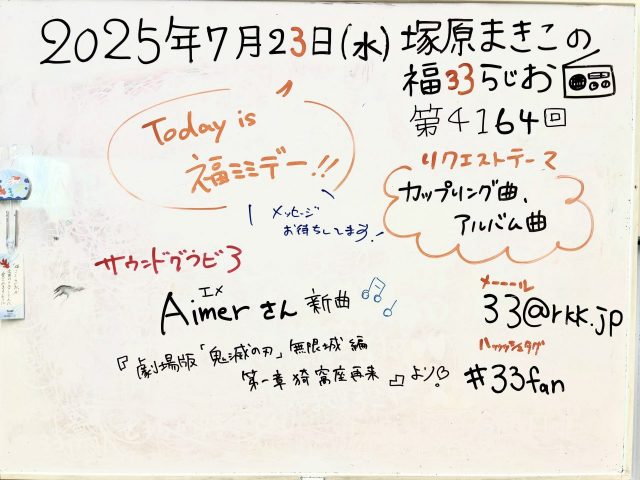 2025年7月23日(水) 塚原まきこの
福33らじお
第4164回
Today is
福ミミデー!!
メッセージ
お待ちしてます!
リクエストテーマ
カップリング曲、
アルバム曲
サウンドグラビ3
エメ
Aimerさん 新曲
『劇場版「鬼滅の刃」無限城編
第一章 猗窩座再来』より
メーーール
33@rkk.jp
ハッッシュタグ
#33fan